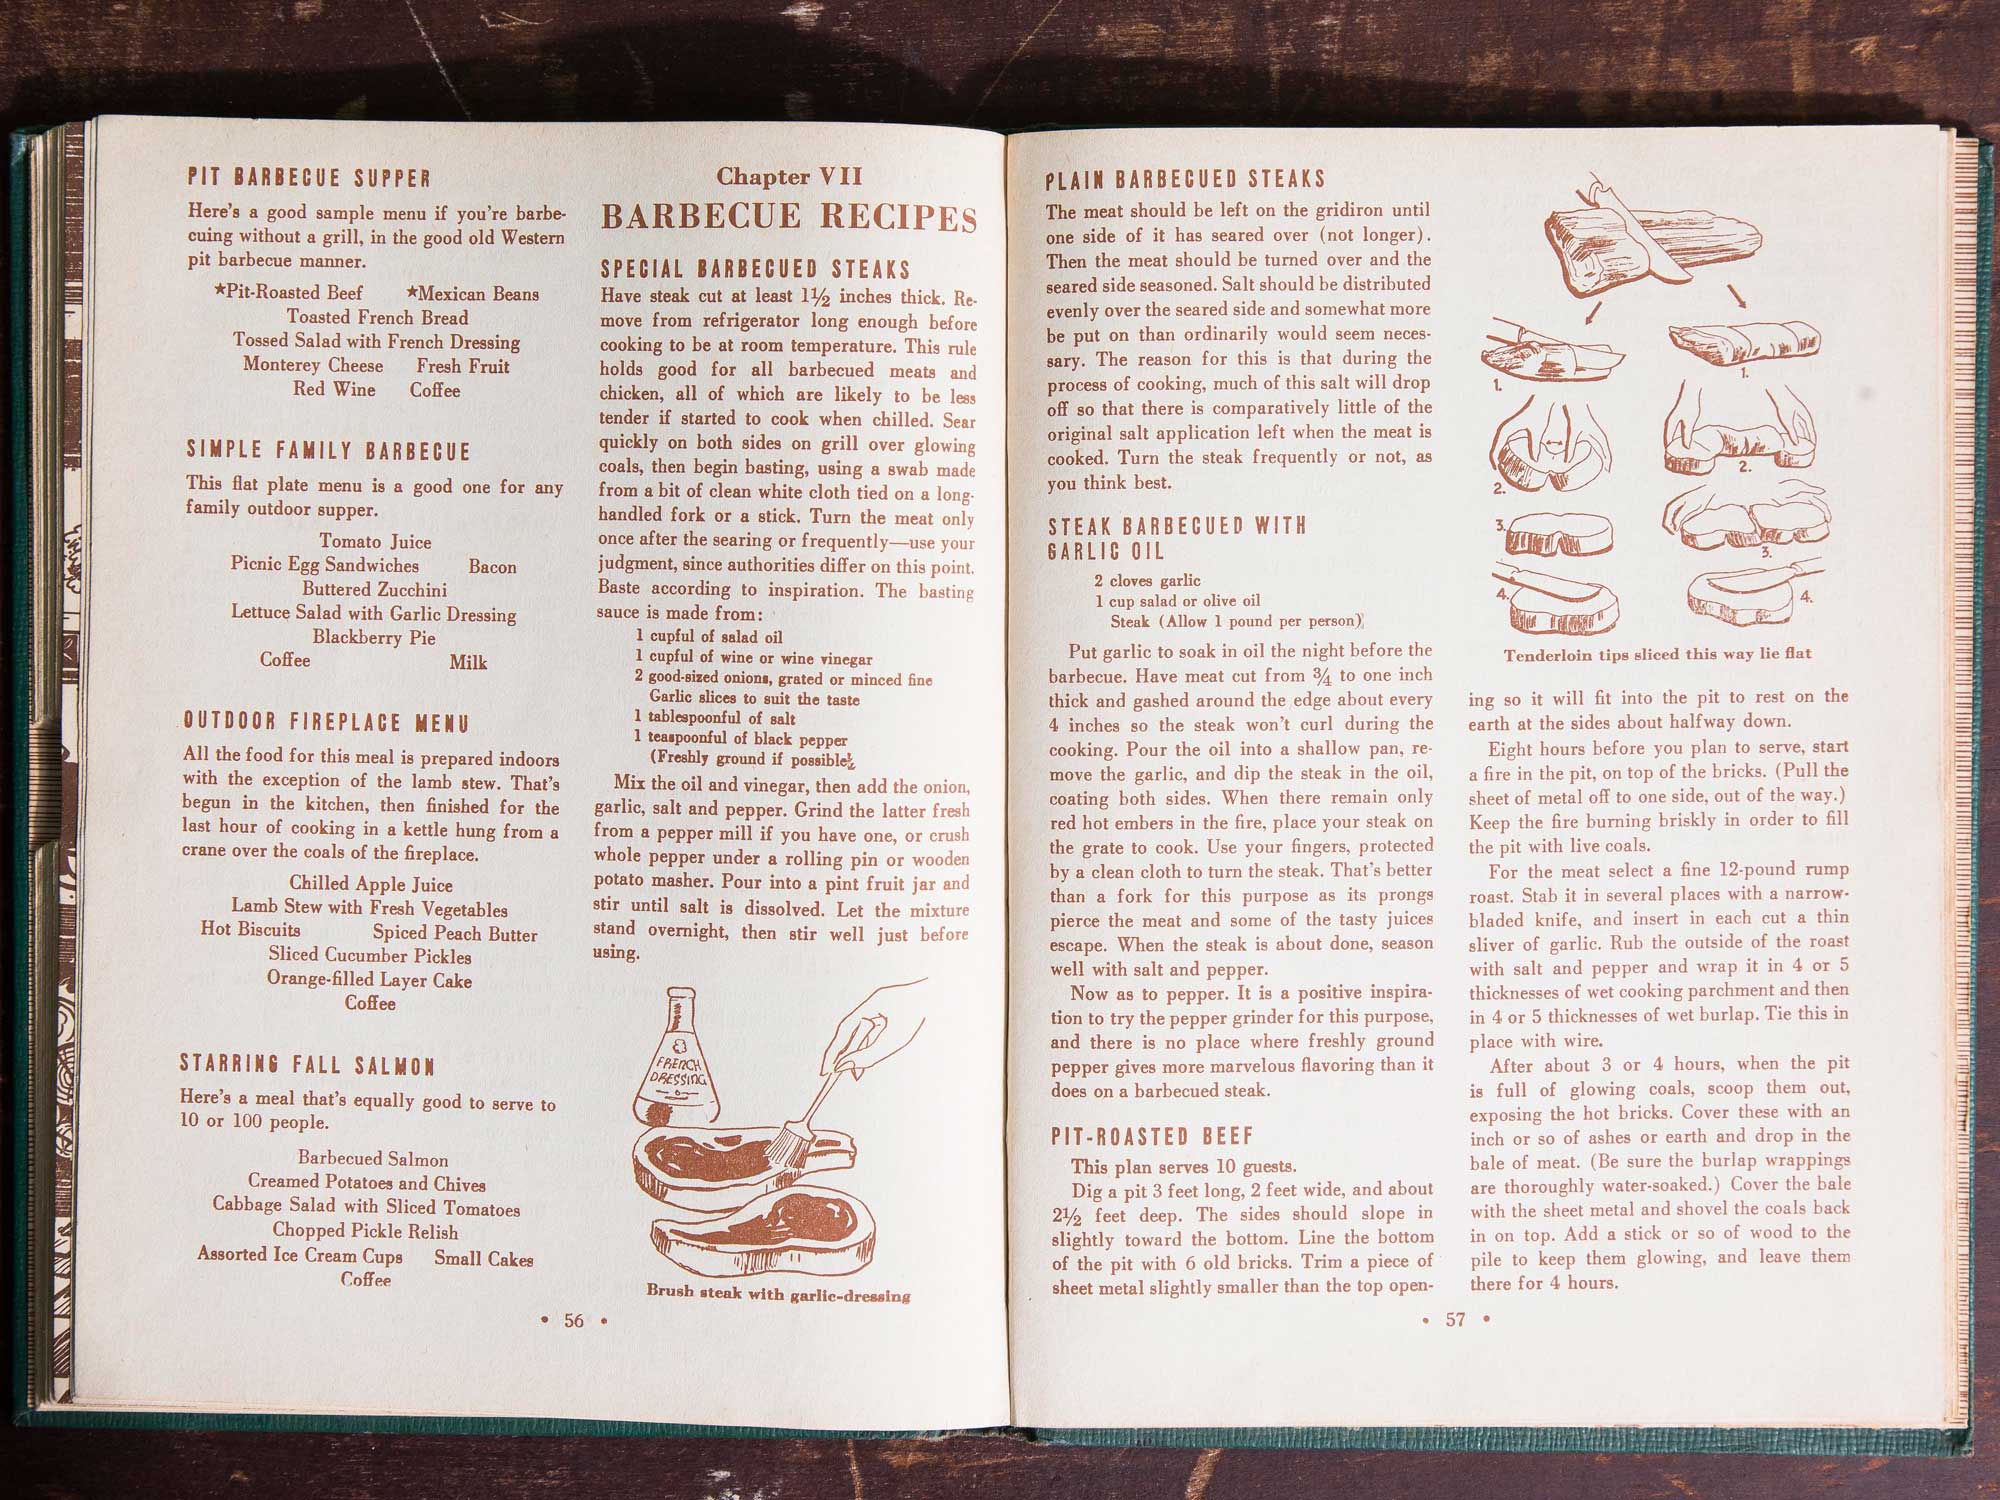 PIT BARBECUE SUPPER
Here's a good sample menu if you're barbe-
cuing without a grill, in the good old Western
pit barbecue manner.
★Pit-Roasted Beef ★Mexican Beans
Toasted French Bread
Tossed Salad with French Dressing
Monterey Cheese Fresh Fruit
Red Wine Coffee
SIMPLE FAMILY BARBECUE
This flat plate menu is a good one for any
family outdoor supper.
Tomato Juice
Picnic Egg Sandwiches Bacon
Buttered Zucchini
Lettuce Salad with Garlic Dressing
Blackberry Pie
Coffee Milk
OUTDOOR FIREPLACE MENU
All the food for this meal is prepared indoors
with the exception of the lamb stew. That's
begun in the kitchen, then finished for the
last hour of cooking in a kettle hung from a
crane over the coals of the fireplace.
Chilled Apple Juice
Lamb Stew with Fresh Vegetables
Hot Biscuits Spiced Peach Butter
Sliced Cucumber Pickles
Orange-filled Layer Cake
Coffee
STARRING FALL SALMON
Here's a meal that's equally good to serve to
10 or 100 people.
Barbecued Salmon
Creamed Potatoes and Chives
Cabbage Salad with Sliced Tomatoes
Chopped Pickle Relish
Assorted Ice Cream Cups Small Cakes
Coffee
Chapter VII
BARBECUE RECIPES
SPECIAL BARBECUED STEAKS
Have steak cut at least 1½ inches thick. Re-
move from refrigerator long enough before
cooking to be at room temperature. This rule
holds good for all barbecued meats and
chicken, all of which are likely to be less
tender if started to cook when chilled. Sear
quickly on both sides on grill over glowing
coals, then begin basting, using a swab made
from a bit of clean white cloth tied on a long-
handled fork or a stick. Turn the meat only
once after the searing or frequently—use your
judgment, since authorities differ on this point.
Baste according to inspiration. The basting
sauce is made from:
1 cupful of salad oil
1 cupful of wine or wine vinegar
2 good-sized onions, grated or minced fine
Garlic slices to suit the taste
1 tablespoonful of salt
1 teaspoonful of black pepper
(Freshly ground if possible)
Mix the oil and vinegar, then add the onion,
garlic, salt and pepper. Grind the latter fresh
from a pepper mill if you have one, or crush
whole pepper under a rolling pin or wooden
potato masher. Pour into a pint fruit jar and
stir until salt is dissolved. Let the mixture
stand overnight, then stir well just before
using.
FRENCH
DRESSING
Brush steak with garlic-dressing
• 56 •
PLAIN BARBECUED STEAKS
The meat should be left on the gridiron until
one side of it has seared over (not longer).
Then the meat should be turned over and the
seared side seasoned. Salt should be distributed
evenly over the seared side and somewhat more
be put on than ordinarily would seem neces-
sary. The reason for this is that during the
process of cooking, much of this salt will drop
off so that there is comparatively little of the
original salt application left when the meat is
cooked. Turn the steak frequently or not, as
you think best.
STEAK BARBECUED WITH
GARLIC OIL
2 cloves garlic
1 cup salad or olive oil
Steak (Allow 1 pound per person)
Put garlic to soak in oil the night before the
barbecue. Have meat cut from ¾ to one inch
thick and gashed around the edge about every
4 inches so the steak won't curl during the
cooking. Pour the oil into a shallow pan, re-
move the garlic, and dip the steak in the oil,
coating both sides. When there remain only
red hot embers in the fire, place your steak on
the grate to cook. Use your fingers, protected
by a clean cloth to turn the steak. That's better
than a fork for this purpose as its prongs
pierce the meat and some of the tasty juices
escape. When the steak is about done, season
well with salt and pepper.
Now as to pepper. It is a positive inspira-
tion to try the pepper grinder for this purpose,
and there is no place where freshly ground
pepper gives more marvelous flavoring than it
does on a barbecued steak.
PIT-ROASTED BEEF
This plan serves 10 guests.
Dig a pit 3 feet long, 2 feet wide, and about
2½ feet deep. The sides should slope in
slightly toward the bottom. Line the bottom
of the pit with 6 old bricks. Trim a piece of
sheet metal slightly smaller than the top open-
1. 1.
2. 2.
3. 3.
4. 4.
Tenderloin tips sliced this way lie flat
ing so it will fit into the pit to rest on the
earth at the sides about halfway down.
Eight hours before you plan to serve, start
a fire in the pit, on top of the bricks. (Pull the
sheet of metal off to one side, out of the way.)
Keep the fire burning briskly in order to fill
the pit with live coals.
For the meat select a fine 12-pound rump
roast. Stab it in several places with a narrow-
bladed knife, and insert in each cut a thin
sliver of garlic. Rub the outside of the roast
with salt and pepper and wrap it in 4 or 5
thicknesses of wet cooking parchment and then
in 4 or 5 thicknesses of wet burlap. Tie this in
place with wire.
After about 3 or 4 hours, when the pit
is full of glowing coals, scoop them out,
exposing the hot bricks. Cover these with an
inch or so of ashes or earth and drop in the
bale of meat. (Be sure the burlap wrappings
are thoroughly water-soaked.) Cover the bale
with the sheet metal and shovel the coals back
in on top. Add a stick or so of wood to the
pile to keep them glowing, and leave them
there for 4 hours.
• 57 •